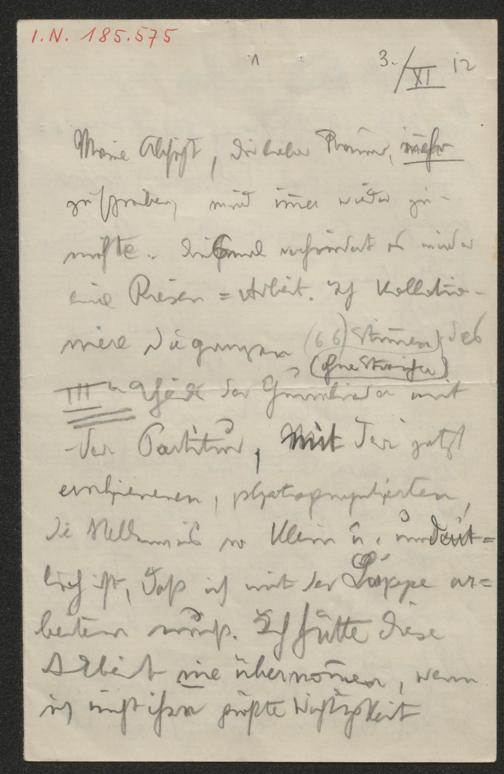 I.N. 185.575
3./XI 12
Meine Absicht, Dir lieber Freund, mehr
zu schreiben, wird immer wieder zu
nichte. Diesmal verhindert es wieder
eine Riesen=Arbeit. Ich kollatio-
niere die ganzen (66) Stimmen des
(ohne Streicher)
III n Theils der Gurrelieder mit
der Partitur, mit der jetzt
erschienenen, photographierten,
die stellenweis so klein u. undeut=
lich ist, daß ich mit der Luppe ar=
beiten muß. Ich hätte diese
Arbeit nie übernommen, wenn
ich nicht ihre größte Wichtigkeit